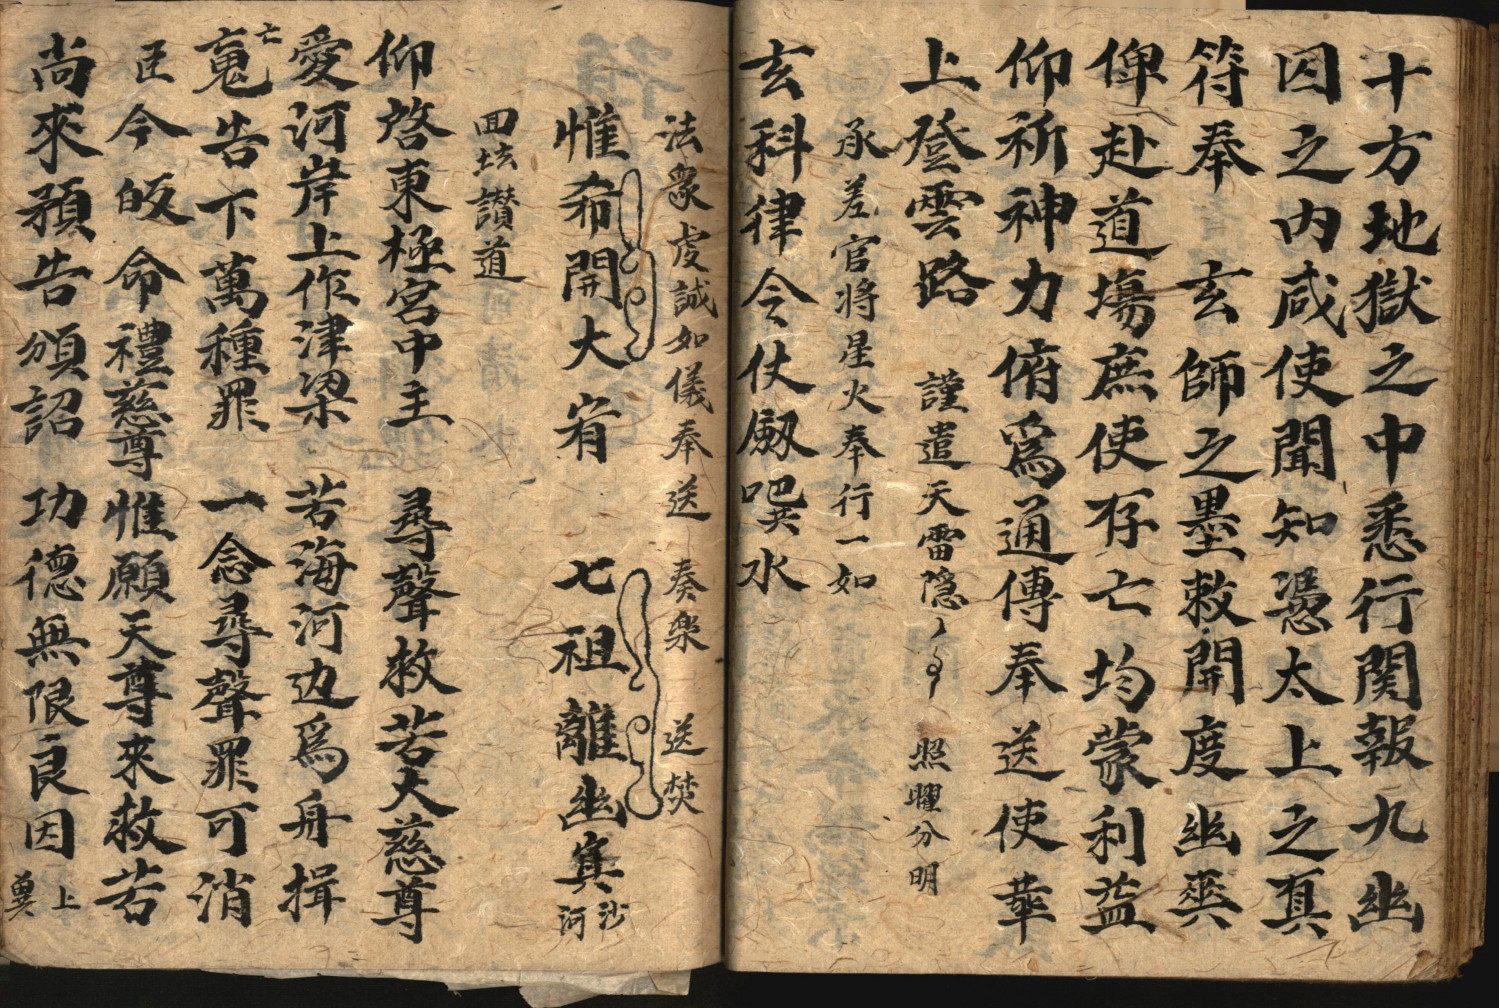 十方地獄之中悉行関報九幽
因之内咸使聞知憑太上之真
符奉 玄師之墨敕開度幽爽
俾赴道場庶使存亡均蒙利益
仰祈神力俯爲通傳奉送使華
上登雲路 謹遣天雷隐 照曜分明
承差官将星火奉行一如
玄科律令仗劔噀水
法衆虔誠如儀奉送 奏樂 送焚
惟希開大宥 七祖離幽冥 沙河
回坛讃道
仰啓東極宮中主 尋聲救苦大慈尊
愛河岸上作津梁 苦海河边爲舟揖
亡䰟告下萬種罪 一念尋聲罪可消
臣今皈命禮慈尊 惟願天尊來救苦
尚來預告頒詔 功德無限良因 上